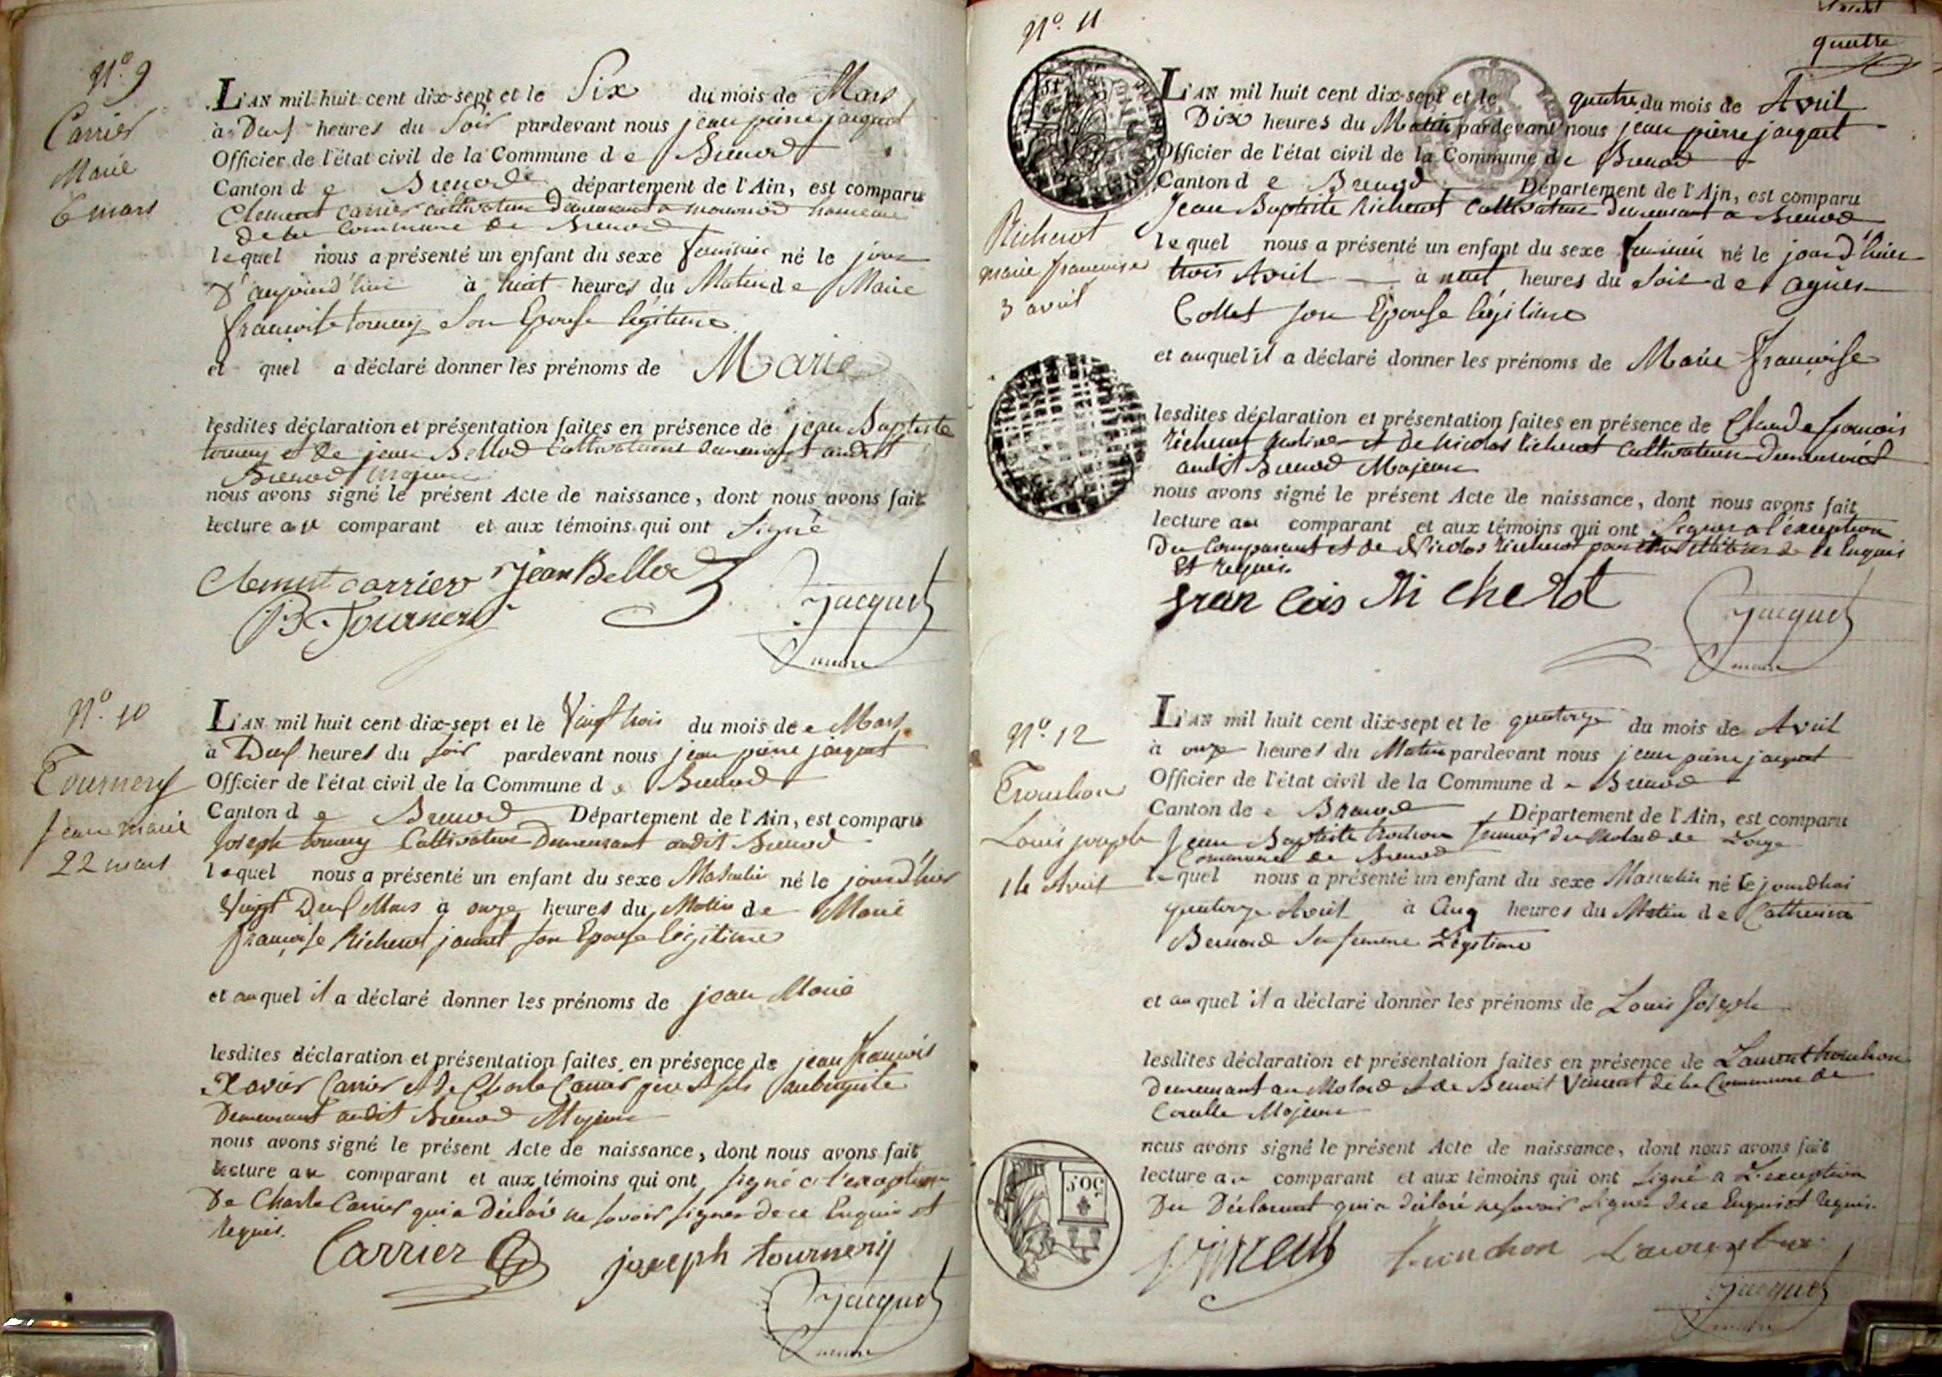 N.º 9
Carrier
Marie
6 mars
L'AN mil huit cent dix-sept et le Six du mois de Mars
à Deux heures du Soir pardevant nous jean pierre jacquet
Officier de l'état civil de la Commune d e Brenod
Canton d e Brenod département de l'Ain, est comparu
Clement Carrier cultivateur Demeurant a hameau
de la Commune de Brenod
lequel nous a présenté un enfant du sexe feminin né le jour
D'aujourd'hui à huit heures du Matin d e Marie
françoise tournery Son Epouse légitime
et quel a déclaré donner les prénoms de Marie
lesdites déclaration et présentation faites en présence de jean Baptiste
tournery et de jean Bellod Cultivateurs demeurant audit
Brenod Majeurs
nous avons signé le présent Acte de naissance, dont nous avons fait
lecture au comparant et aux témoins qui ont Signé
Clement carrier jean Bellod
B Tournery
Jacquet
maire
N.º 10
Tournery
Jean marie
22 mars
L'AN mil huit cent dix-sept et le Vingt trois du mois de Mars
à Deux heures du soir pardevant nous jean pierre jacquet
Officier de l'état civil de la Commune d e Brenod
Canton d e Brenod Département de l'Ain, est comparu
Joseph tournery Cultivateur Demeurant audit Brenod
lequel nous a présenté un enfant du sexe Masculin né le jourd'hier
Vingt Deux Mars à onze heures du Matin de Marie
françoise Richerot son Epouse légitime
et auquel il a déclaré donner les prénoms de jean Marie
lesdites déclaration et présentation faites en présence de jean françois
Xavier Carrier et de Charle Carrier père et fils aubergiste
Demeurant audit Brenod Majeurs
nous avons signé le présent Acte de naissance, dont nous avons fait
lecture au comparant et aux témoins qui ont signé a l'exception
De Charle Carrier qui a Déclaré ne savoir signer de ce Enquis et
Requis.
Carrier joseph tournery
Jacquet
maire
N.º 11
quatre
Richerot
marie françoise
3 avril
L'AN mil huit cent dix-sept et le quatre du mois de Avril
Dix heures du Matin pardevant nous jean pierre jacquet
Officier de l'état civil de la Commune d e Brenod
Canton d e Brenod Département de l'Ain, est comparu
Jean Baptiste Richerot Cultivateur Demeurant a Brenod
lequel nous a présenté un enfant du sexe feminin né le jour d'hier
trois Avril à neuf heures du Soir d e agnès
Collet son Epouse légitime
et auquel il a déclaré donner les prénoms de Marie françoise
lesdites déclaration et présentation faites en présence de Claude françois
Richerot et De Nicolas Richerot Cultivateurs Demeurant
audit Brenod Majeurs
nous avons signé le présent Acte de naissance, dont nous avons fait
lecture au comparant et aux témoins qui ont Signer a l'exception
Du Comparant et de Nicolas Richerot de ce Enquis
Et requis.
fran cois Richerot
Jacquet
maire
N.º 12
Trouchon
Louis joseph
14 Avril
L'AN mil huit cent dix-sept et le quatorze du mois de Avril
à onze heures du Matin pardevant nous jean pierre jacquet
Officier de l'état civil de la Commune d e Brenod
Canton de e Brenod Département de l'Ain, est comparu
Jean Baptiste trouchon fermier du Molard de
Commune de Brenod
lequel nous a présenté un enfant du sexe Masculin né le jourdhui
quatorze Avril à Cinq heures du Matin d e Catherine
Bernard sa femme Légitime
et auquel il a déclaré donner les prénoms de Louis Joseph
lesdites déclaration et présentation faites en présence de Laurent trouchon
Demeurant au Molard et de Benoit Vincent de la Commune de
Corcelle Majeurs
nous avons signé le présent Acte de naissance, dont nous avons fait
lecture au comparant et aux témoins qui ont signé a L'exception
Du Déclarant qui a déclaré ne savoir signer de ce Enquis et Requis.
50C
Vincent trunchon
Jacquet
maire